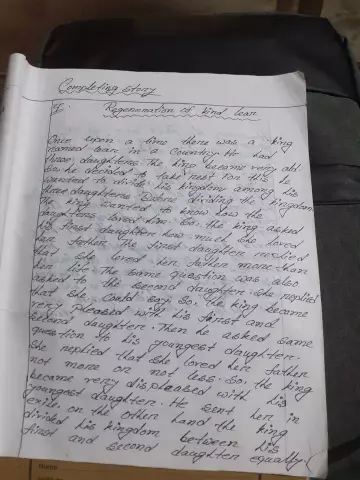 Completing story
Regenaration of kind lear
Once upon a time there was a king
named lear in a country. He had
three daughters. The king became very old.
So he decided to take rest. For this he
wanted to divide his kingdom among his
three daughters. Before dividing the kingdom
the king wanted to know how the
daughters loved him. So the king asked
his first daughter how much she loved
her father. The first daughter replied
that she loved her father more than
her life. The same question was also
asked to the second daughter. She replied
that she could say so. The king became
very pleased with his first and
second daughter. Then he asked same
question to his youngest daughter.
She replied that she loved her father
not more on not less. So, the king
became very displeased with his
youngest daughter. He sent her in
exile. on the other hand the king
divided his kingdom between his
first and second daughter equally.